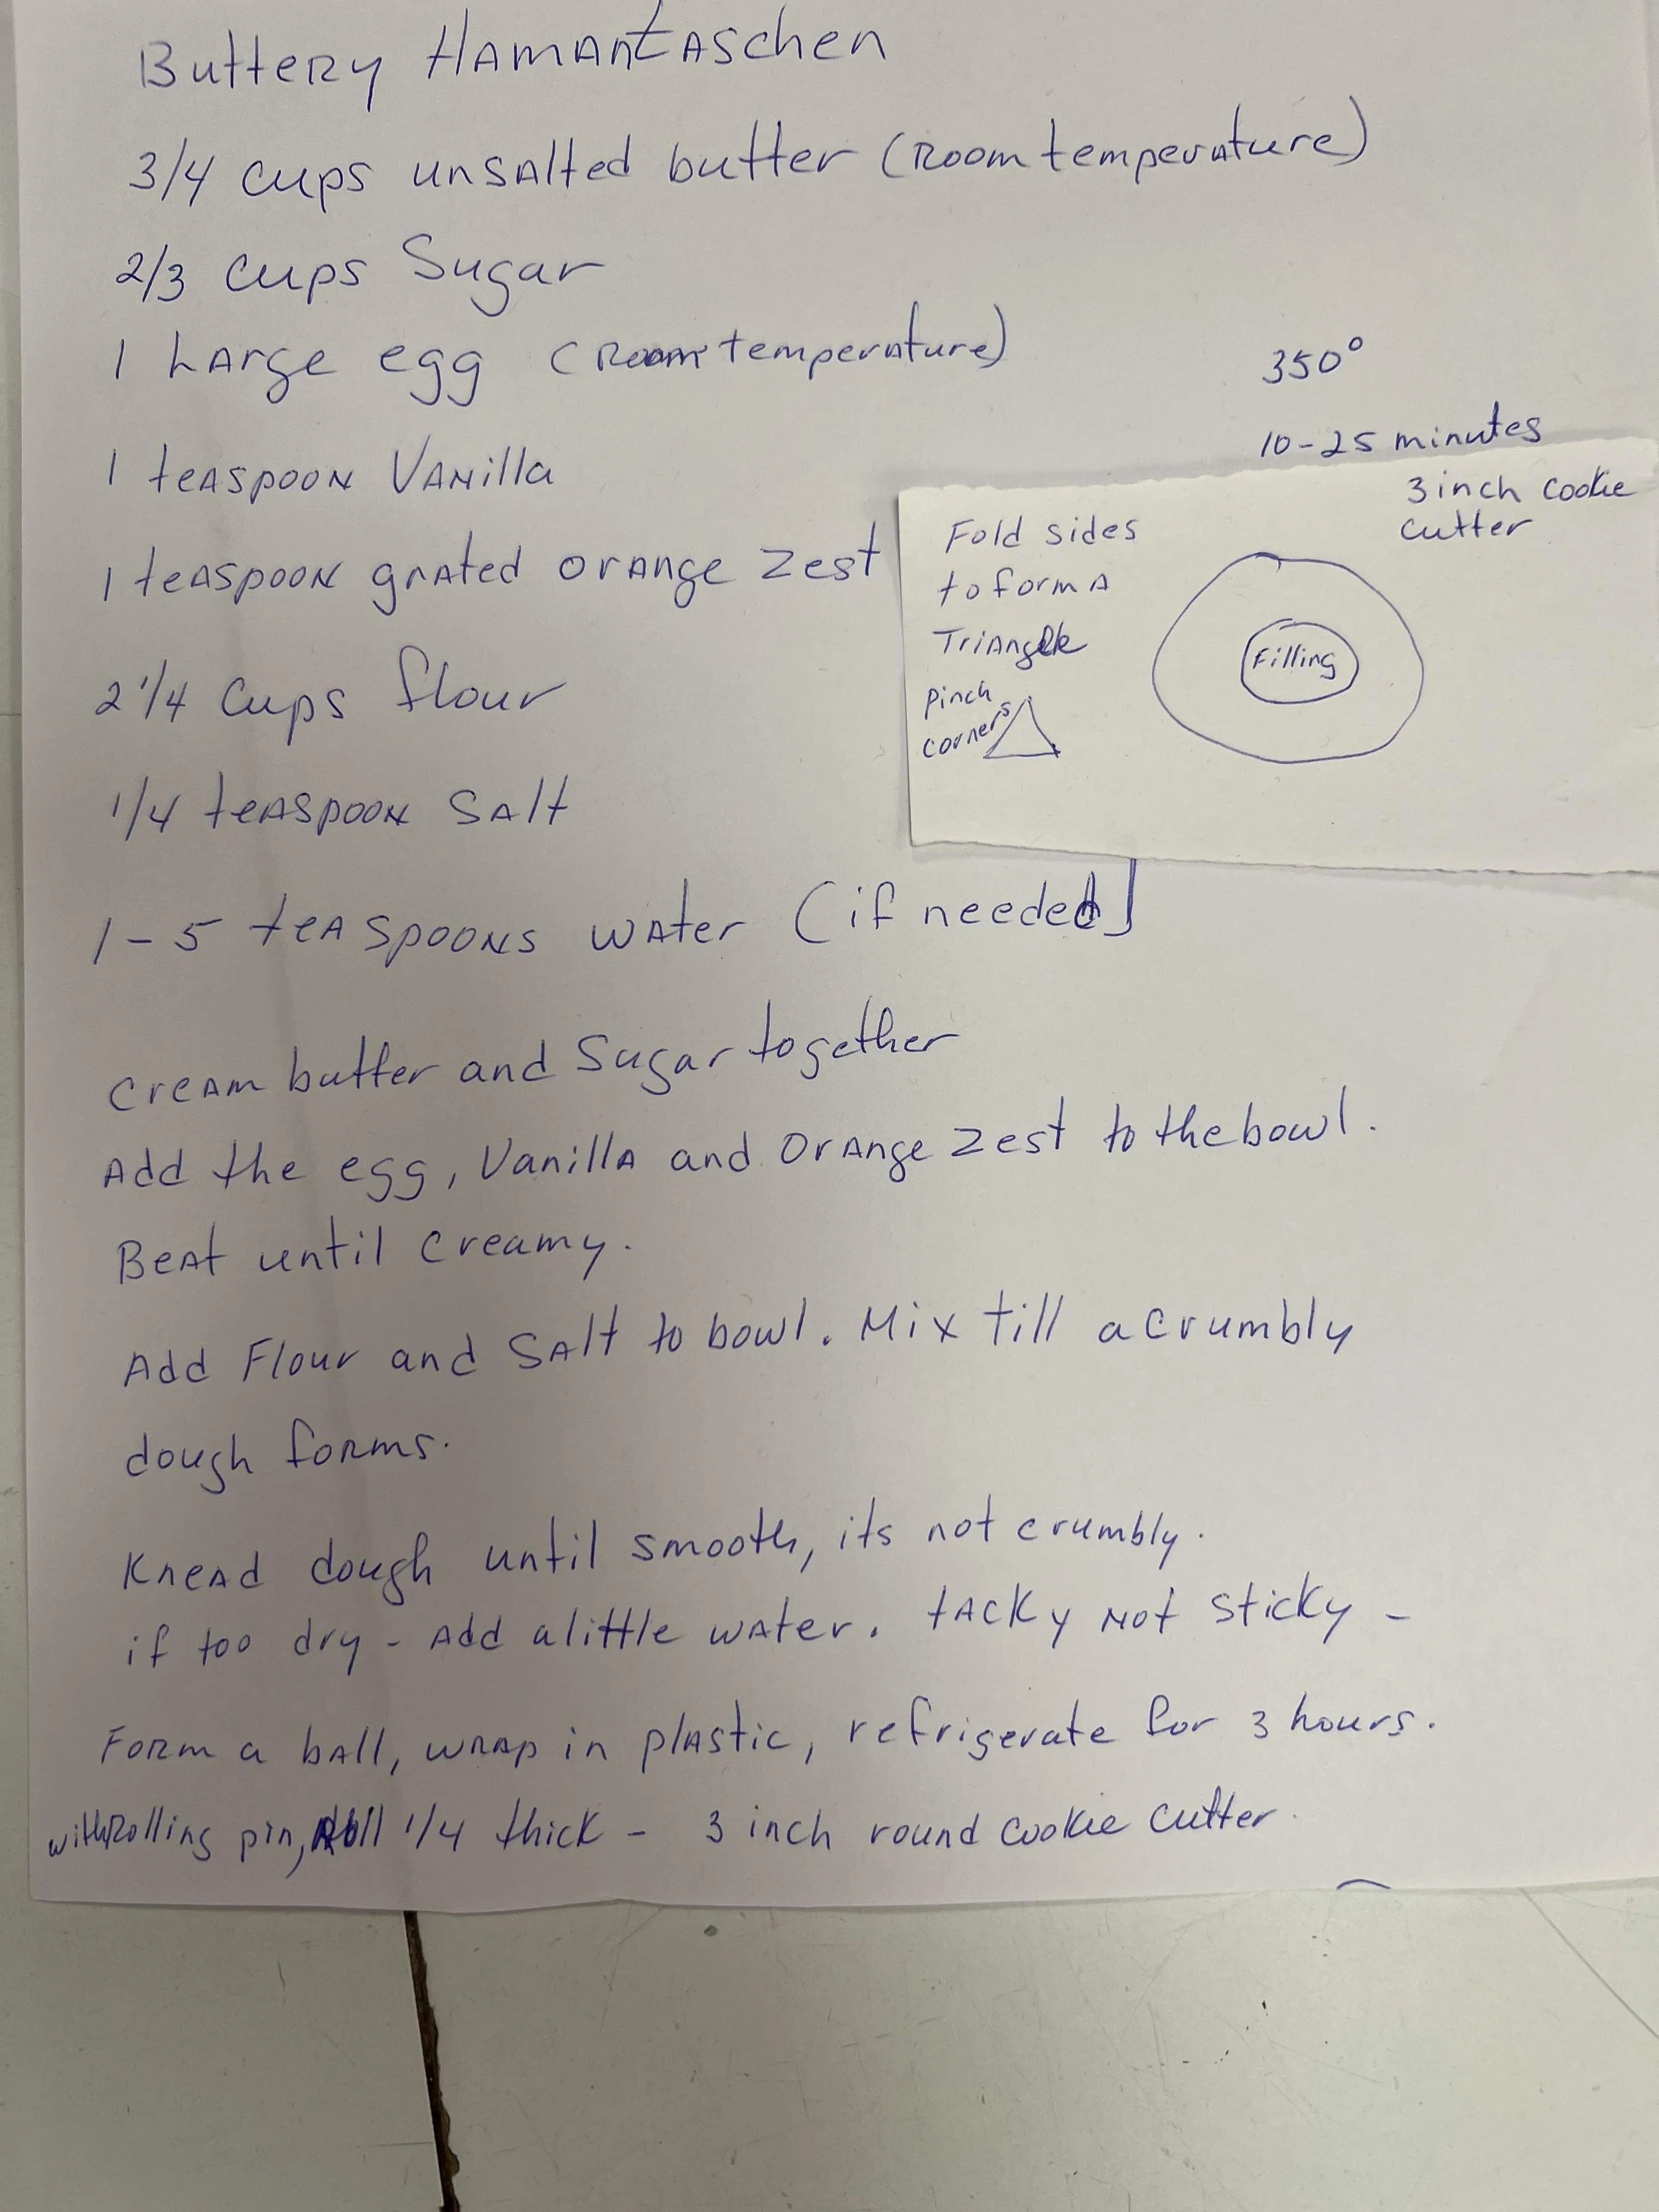 Buttery Hamantaschen
3/4 cups unsalted butter (Room temperature)
2/3 cups Sugar
1 Large egg (Room temperature)
350°
10-25 minutes
1 teaspoon Vanilla
1 teaspoon grated orange zest
2 1/4 cups flour
1/4 teaspoon Salt
1-5 teaspoons water (if needed)
3 inch cookie
cutter
Fold sides
to form A
Triangle
Pinch
corners
Filling
Cream butter and Sugar together
Add the egg, Vanilla and Orange Zest to the bowl.
Beat until creamy.
Add Flour and Salt to bowl. Mix till a crumbly
dough forms.
Knead dough until smooth, its not crumbly.
if too dry - Add a little water. tacky Not sticky -
Form a ball, wrap in plastic, refrigerate for 3 hours.
with Rolling pin, Roll 1/4 thick - 3 inch round cookie cutter.